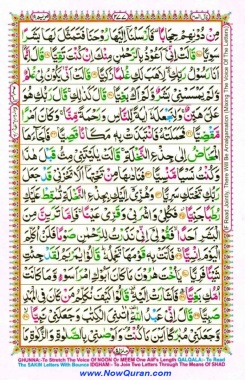 مِنْ دُوْنِهِمْ حِجَابًا فَاَرْسَلْنَاۤ اِلَيْهَا رُوْحَنَا فَتَمَثَّلَ لَهَا بَشَرًا
سَوِيًّا قَالَتْ اِنِّيْۤ اَعُوْذُ بِالرَّحْمٰنِ مِنْكَ اِنْ كُنْتَ تَقِيًّا قَالَ اِنَّمَاۤ
اَنَا رَسُوْلُ رَبِّكِ لِاَهَبَ لَكِ غُلٰمًا زَكِيًّا قَالَتْ اَنّٰى يَكُوْنُ لِيْ غُلٰمٌ
وَّلَمْ يَمْسَسْنِيْ بَشَرٌ وَّلَمْ اَكُ بَغِيًّا قَالَ كَذٰلِكِ قَالَ رَبُّكِ هُوَ
عَلَيَّ هَيِّنٌ وَلِنَجْعَلَهٗۤ اٰيَةً لِّلنَّاسِ وَرَحْمَةً مِّنَّا وَكَانَ اَمْرًا
مَّقْضِيًّا فَحَمَلَتْهُ فَانْتَبَذَتْ بِهٖ مَكَانًا قَصِيًّا فَاَجَآءَهَا
الْمَخَاضُ اِلٰى جِذْعِ النَّخْلَةِ قَالَتْ يٰلَيْتَنِيْ مِتُّ قَبْلَ هٰذَا
وَكُنْتُ نَسْيًا مَّنْسِيًّا فَنَادٰىهَا مِنْ تَحْتِهَاۤ اَلَّا تَحْزَنِيْ قَدْ جَعَلَ
رَبُّكِ تَحْتَكِ سَرِيًّا وَهُزِّيْۤ اِلَيْكِ بِجِذْعِ النَّخْلَةِ تُسٰقِطْ عَلَيْكِ
رُطَبًا جَنِيًّا فَكُلِيْ وَاشْرَبِيْ وَقَرِّيْ عَيْنًا فَاِمَّا تَرَيِنَّ مِنَ الْبَشَرِ
اَحَدًا فَقُوْلِيْۤ اِنِّيْ نَذَرْتُ لِلرَّحْمٰنِ صَوْمًا فَلَنْ اُكَلِّمَ
الْيَوْمَ اِنْسِيًّا فَاَتَتْ بِهٖ قَوْمَهَا تَحْمِلُهٗ قَالُوْا يٰمَرْيَمُ لَقَدْ جِئْتِ
شَيْئًا فَرِيًّا يٰۤاُخْتَ هٰرُوْنَ مَا كَانَ اَبُوْكِ امْرَاَ سَوْءٍ وَّمَا كَانَتْ
اُمُّكِ بَغِيًّا فَاَشَارَتْ اِلَيْهِ قَالُوْا كَيْفَ نُكَلِّمُ مَنْ كَانَ فِي الْمَهْدِ
صَبِيًّا قَالَ اِنِّيْ عَبْدُ اللّٰهِ اٰتٰىنِيَ الْكِتٰبَ وَجَعَلَنِيْ نَبِيًّا
وَّجَعَلَنِيْ مُبٰرَكًا اَيْنَ مَا كُنْتُ وَاَوْصٰنِيْ بِالصَّلٰوةِ وَالزَّكٰوةِ
GHUNNA:-To Stretch The Voice Of NOON Or MEEM One Alif's Length QALQALA:- To Read
The SAKIN Letters With Bounce IDGHAM:- To Join Two Letters Through The Means Of SHAD
www.NowQuran.com